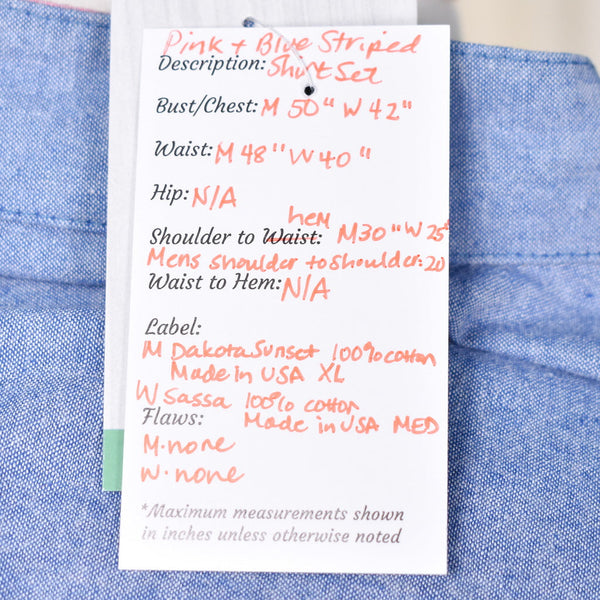 Pink + Blue Striped
Description: Shirt Set
Bust/Chest: M 50" W 42"
Waist: M 48" W 40"
Hip: N/A
hem
Shoulder to Waist: M 30" W 25"
Mens shoulder to shoulder: 20
Waist to Hem: N/A
Label:
M Dakota Sunset 100% cotton
Made in USA XL
W Sassa 100% cotton
Flaws: Made in USA MED
M. none
W. none
*Maximum measurements shown
in inches unless otherwise noted